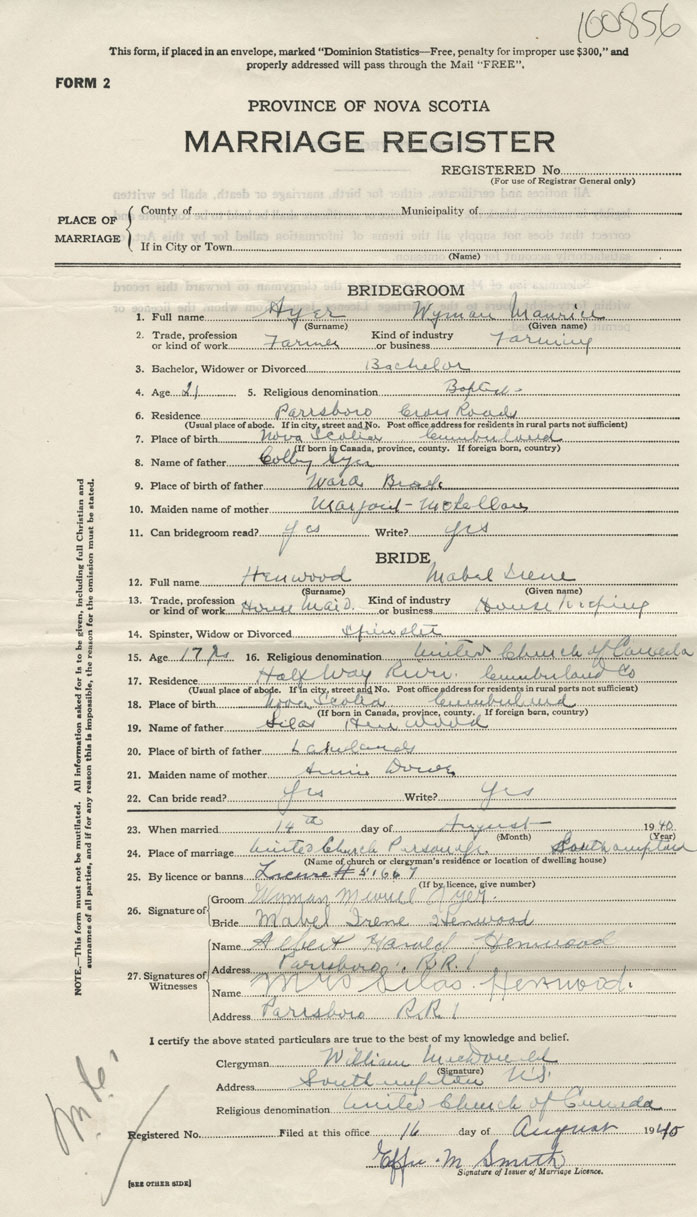 100856
This form, if placed in an envelope, marked "Dominion Statistics—Free, penalty for improper use $300," and
properly addressed will pass through the Mail "FREE".
FORM 2
PROVINCE OF NOVA SCOTIA
MARRIAGE REGISTER
REGISTERED No.
(For use of Registrar General only)
PLACE OF MARRIAGE
County of Municipality of
If in City or Town
(Name)
BRIDEGROOM
1. Full name Ayer Wyman Maurice
(Surname) (Given name)
2. Trade, profession or kind of work Farmer Kind of industry or business Farming
3. Bachelor, Widower or Divorced Bachelor
4. Age 21 5. Religious denomination Baptist
6. Residence Parrsboro Cross Roads
(Usual place of abode. If in city, street and No. Post office address for residents in rural parts not sufficient)
7. Place of birth Nova Scotia Cumberland
(If born in Canada, province, county. If foreign born, country)
8. Name of father Colby Ayer
9. Place of birth of father Wards Brook
10. Maiden name of mother
11. Can bridegroom read? yes Write? yes
BRIDE
12. Full name Henwood Mabel Irene
(Surname) (Given name)
13. Trade, profession or kind of work House Maid Kind of industry or business House Keeping
14. Spinster, Widow or Divorced Spinster
15. Age 17 yrs 16. Religious denomination United Church of Canada
17. Residence Half Way River Cumberland Co
(Usual place of abode. If in city, street and No. Post office address for residents in rural parts not sufficient)
18. Place of birth Nova Scotia Cumberland
(If born in Canada, province, county. If foreign born, country)
19. Name of father Silas Henwood
20. Place of birth of father
21. Maiden name of mother Annie
22. Can bride read? Yes Write? Yes
23. When married 14th day of August 1940
(Month) (Year)
24. Place of marriage United Church Parsonage Southampton
(Name of church or clergyman's residence or location of dwelling house)
25. By licence or banns License # 51667
(If by licence, give number)
26. Signature of
Groom Wyman Ayer.
Bride Mabel Irene Henwood
27. Signatures of Witnesses
Name Albert Harold Henwood
Address Parrsboro R.R. 1
Name Mrs Silas Henwood.
Address Parrsboro R.R. 1
I certify the above stated particulars are true to the best of my knowledge and belief.
Clergyman William MacDonald
(Signature)
Address Southampton N.S.
Religious denomination United Church of Canada
Registered No. Filed at this office 16 day of August 1940
Effie M Smith
Signature of Issuer of Marriage Licence.
[SEE OTHER SIDE]
NOTE.—This form must not be mutilated. All information asked for is to be given, including full Christian and
surnames of all parties, and if for any reason this is impossible, the reason for the omission must be stated.